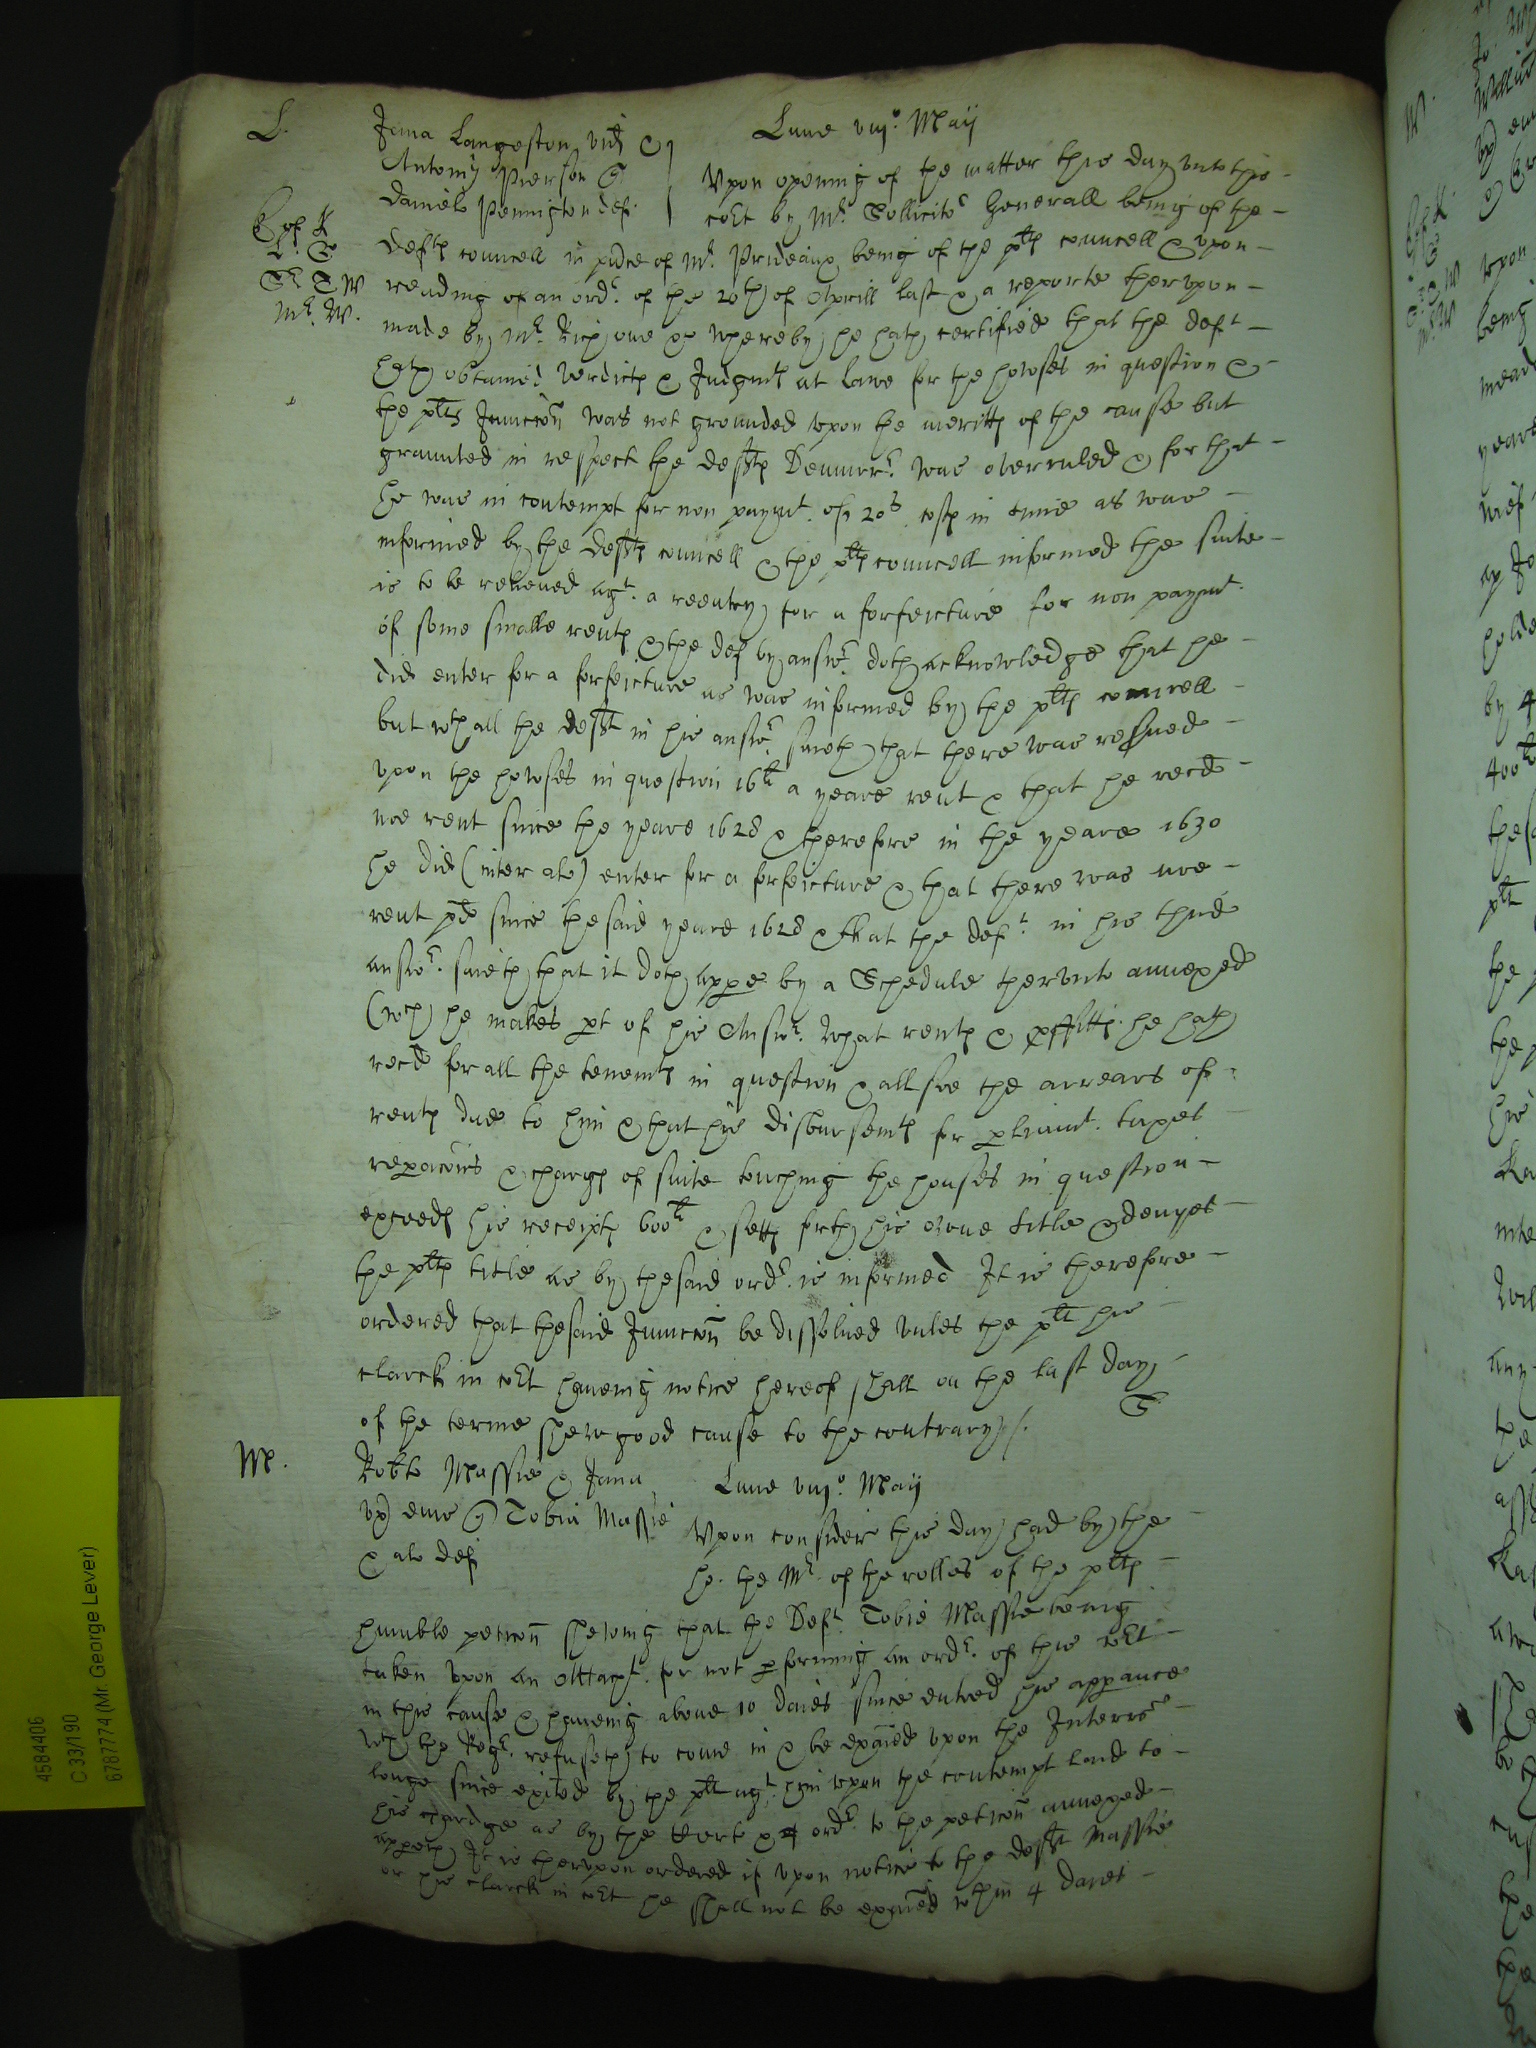 L. Jana Langeston vid &
Lune viijo. Maij
Antony Pierson qr
Daniel Pennington def.
Vpon opening of the matter this day vnto this
cort by Mr. Sollicitor Generall being of the
defts councell in prdce of Mr. Prideaux being of the plts councell & vpon
reading of an ordr. of the 20th of Aprill last & a reporte thervpon
made by Mr. Rich one &c whereby he hath certified that the deft
hath obtained verdicts & Judgmts at lawe for the howses in question &
the plts Iniuccon was not grounded vpon the meritts of the cause but
graunted in respect the defts Demurr. was overruled & for that
he was in contempt for non paymt. of 20s costs in time as was
informed by the defts councell & the plts councell informed the suite
is to be releived agt. a reentry for a forfeicture for non paymt.
of some smalle rents & the def by answr. doth acknowledge that he
did enter for a forfeicture as was informed by the plts councell
but wthall the deft in his answr. saieth that there was resrued
vpon the howses in question 16li a yeare rent & that he recd
noe rent since the yeare 1628 & therefore in the yeare 1630
he did (inter al) enter for a forfeicture & that there was noe
rent pd since the said yeare 1628 & that the deft. in his third
answr. saieth that it doth appe by a Schedule thervnto annexed
(wch he makes pt of his Answr. what rents & proffitts he hath
recd for all the tenemts in question & allsoe the arrears of
rents due to him & that his disbursemts for parliamt. taxes
repacons & chargs of suite touching the houses in question
exceeds his receipts 600li & setts forth his owne title & denyes
the plts title as by the said ordr. is informed It is therefore
ordered that the said Iniuccon be dissolued vnles the plt his
clarck in cort haueing notice hereof shall on the last day
of the terme shew good cause to the contrary
M. Robte Massie & Jana
Lune viijo. May
vx eius qr Tobia Massie
& al def
Vpon consider this day had by the
ho. the Mr. of the rolles of the plts
humble peticon shewing that the Deft. Tobie Massie being
taken vpon an Attacht. for not performing an ordr. of this cort
in this cause & haueing aboue 10 daies since entred his apparance
wth the Regr. refuseth to come in & be exaied vpon the Interrs
longe since exited by the plt agt. him vpon the contempt laid to
his chardge as by the Cert & ordr. to the peticon annexed
appeth It is thervpon ordered if vpon notice to the deft Massie
or his clarck in cort he shall not be exaied wthin 4 daies
4584406
C 33/190
6787774 (Mr. George Lever)